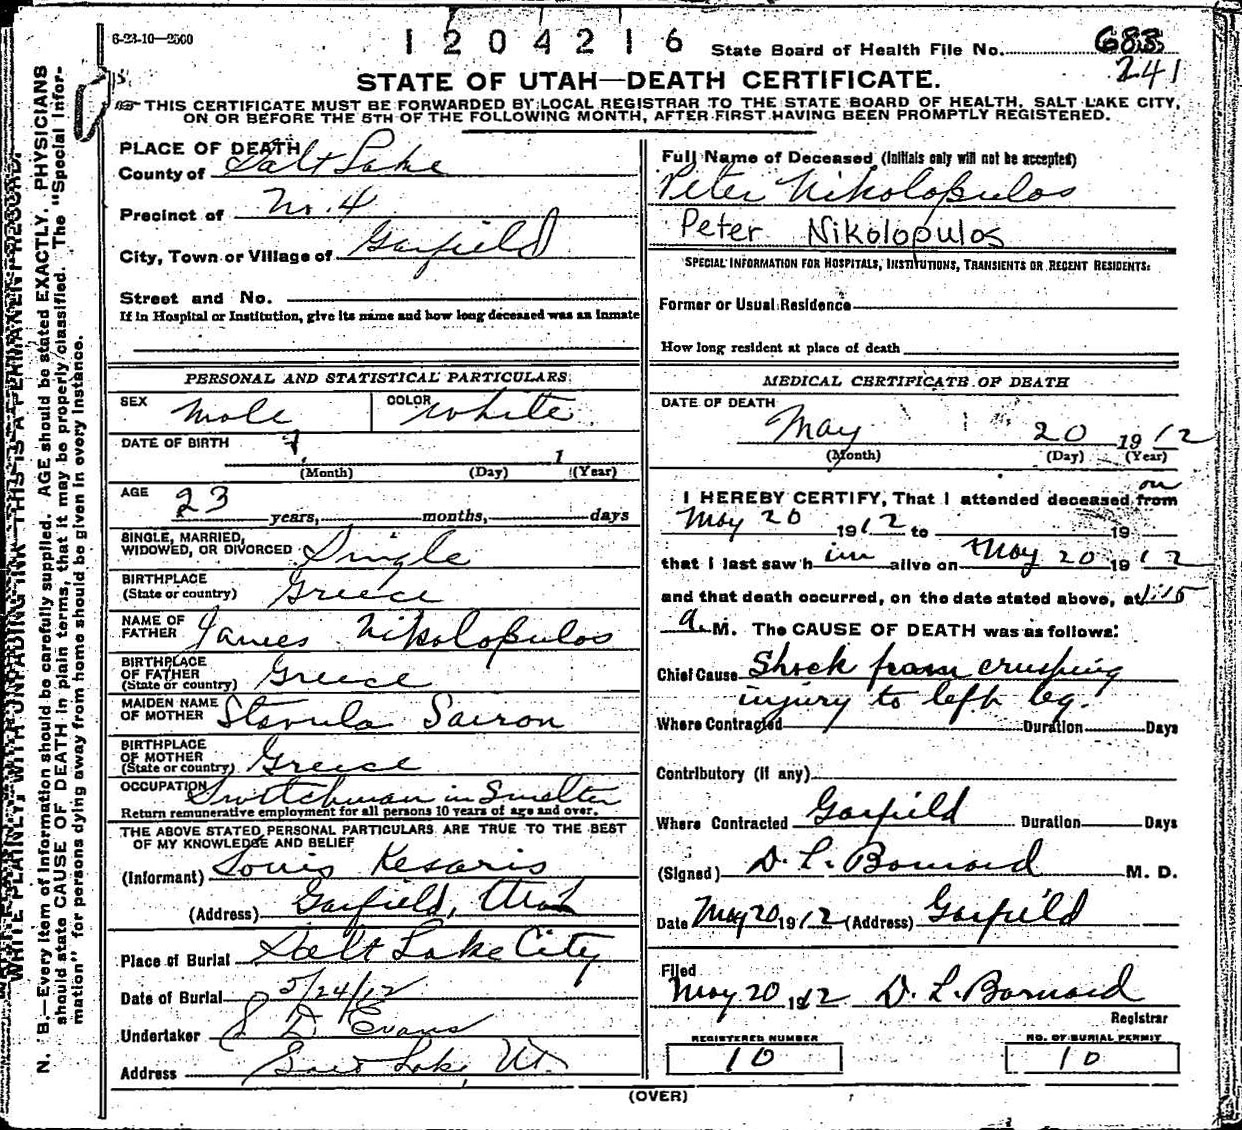 6-23-10—2500
1204216
State Board of Health File No. 683
241
STATE OF UTAH—DEATH CERTIFICATE.
THIS CERTIFICATE MUST BE FORWARDED BY LOCAL REGISTRAR TO THE STATE BOARD OF HEALTH, SALT LAKE CITY,
ON OR BEFORE THE 5TH OF THE FOLLOWING MONTH, AFTER FIRST HAVING BEEN PROMPTLY REGISTERED.
WRITE PLAINLY, WITH UNFADING INK—THIS IS A PERMANENT RECORD.
N. B.—Every item of information should be carefully supplied. AGE should be stated EXACTLY. PHYSICIANS
should state CAUSE OF DEATH in plain terms, that it may be properly classified. The "Special Infor-
mation" for persons dying away from home should be given in every instance.
PLACE OF DEATH
County of Salt Lake
Precinct of No. 4
City, Town or Village of Garfield
Street and No.
If in Hospital or Institution, give its name and how long deceased was an inmate
PERSONAL AND STATISTICAL PARTICULARS
SEX Male COLOR White
DATE OF BIRTH
(Month) (Day) 1 (Year)
AGE 23 years, months, days
SINGLE, MARRIED,
WIDOWED, OR DIVORCED Single
BIRTHPLACE
(State or country) Greece
NAME OF
FATHER James Nikolopulos
BIRTHPLACE
OF FATHER
(State or country) Greece
MAIDEN NAME
OF MOTHER Stavula Sairon
BIRTHPLACE
OF MOTHER
(State or country) Greece
OCCUPATION Switchman in Smelter
Return remunerative employment for all persons 10 years of age and over.
THE ABOVE STATED PERSONAL PARTICULARS ARE TRUE TO THE BEST
OF MY KNOWLEDGE AND BELIEF
(Informant) Louis Kesaris
(Address) Garfield, Utah
Place of Burial Salt Lake City
Date of Burial 5/24/12
Undertaker S D Evans
Address Salt Lake, Ut.
Full Name of Deceased (Initials only will not be accepted)
Peter Nikolopulos
Peter Nikolopulos
SPECIAL INFORMATION FOR HOSPITALS, INSTITUTIONS, TRANSIENTS OR RECENT RESIDENTS:
Former or Usual Residence
How long resident at place of death
MEDICAL CERTIFICATE OF DEATH
DATE OF DEATH
May 20 1912
(Month) (Day) (Year)
on
I HEREBY CERTIFY, That I attended deceased from
May 20 1912 to 19
that I last saw h im alive on May 20 1912
and that death occurred, on the date stated above, at 1:15
a. M. The CAUSE OF DEATH was as follows:
Chief Cause Shock from crushing
injury to left leg.
Where Contracted Duration Days
Contributory (if any)
Where Contracted Garfield Duration Days
(Signed) D. L. Barnard M. D.
Date May 20 1912 (Address) Garfield
Filed
May 20 1912 D. L. Barnard
Registrar
REGISTERED NUMBER
10
NO. OF BURIAL PERMIT
10
(OVER)